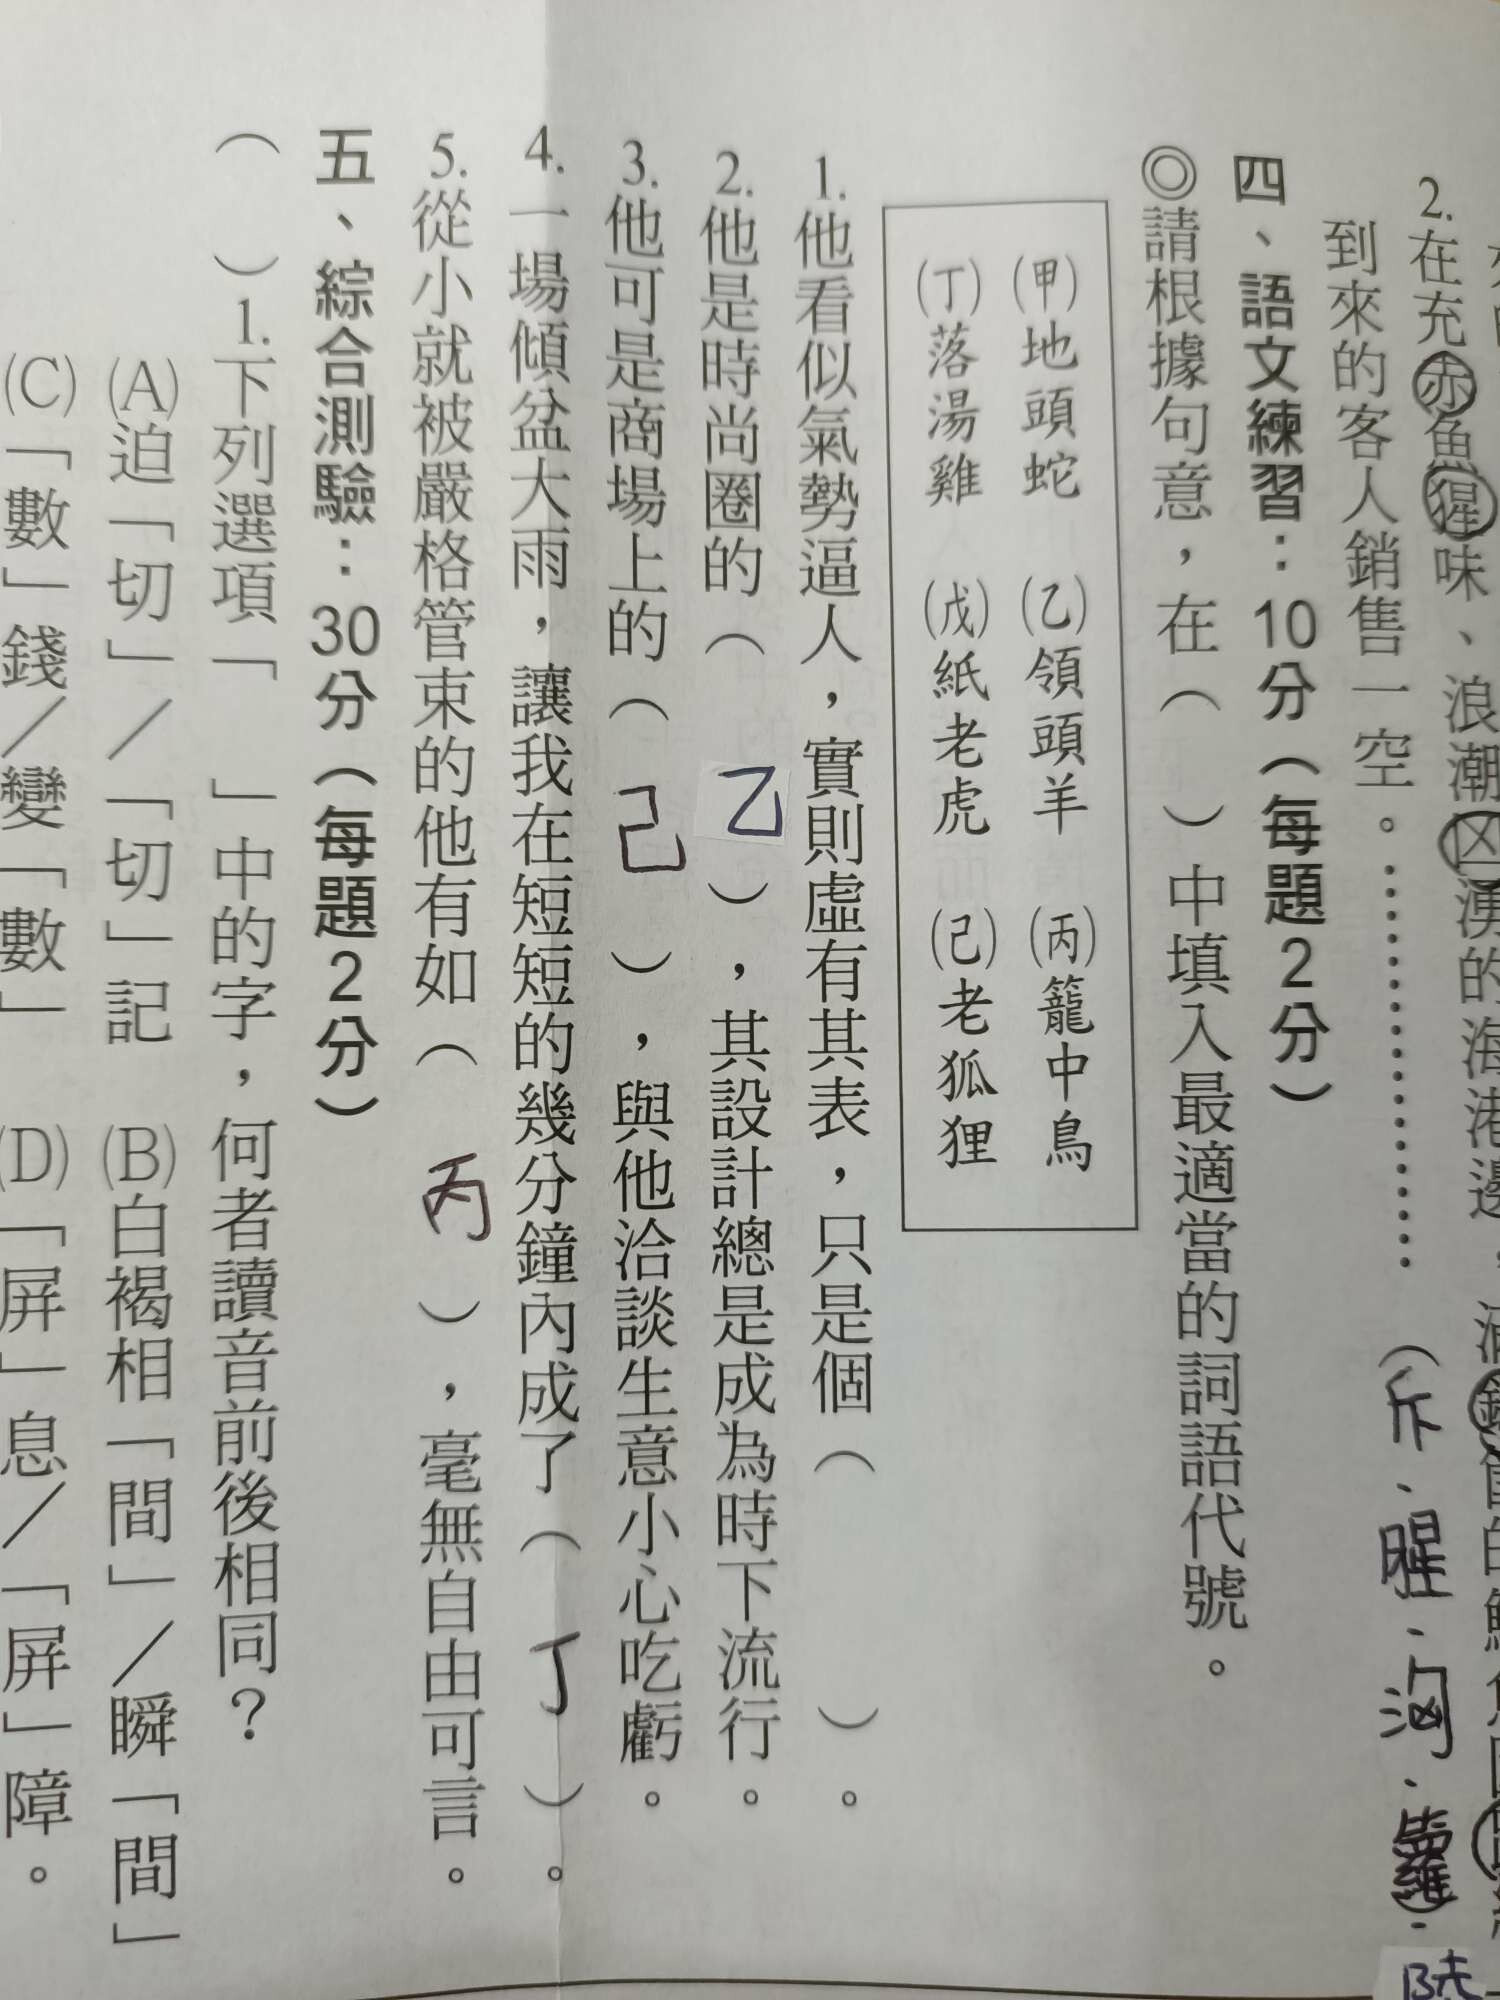 2.在充赤魚猩味、浪潮凶湧的海港邊，滿
到來的客人銷售一空。……………………（斥、腥、洶、蘿、陸
四、語文練習：10分（每題2分）
◎請根據句意，在（ ）中填入最適當的詞語代號。
(甲)地頭蛇 (乙)領頭羊 (丙)籠中鳥
(丁)落湯雞 (戊)紙老虎 (己)老狐狸
1.他看似氣勢逼人，實則虛有其表，只是個（ ）。
2.他是時尚圈的（乙），其設計總是成為時下流行。
3.他可是商場上的（己），與他洽談生意小心吃虧。
4.一場傾盆大雨，讓我在短短的幾分鐘內成了（丁）。
5.從小就被嚴格管束的他有如（丙），毫無自由可言。
五、綜合測驗：30分（每題2分）
（ ）1.下列選項「 」中的字，何者讀音前後相同？
(A)迫「切」／「切」記 (B)白褐相「間」／瞬「間」
(C)「數」錢／變「數」 (D)「屏」息／「屏」障。